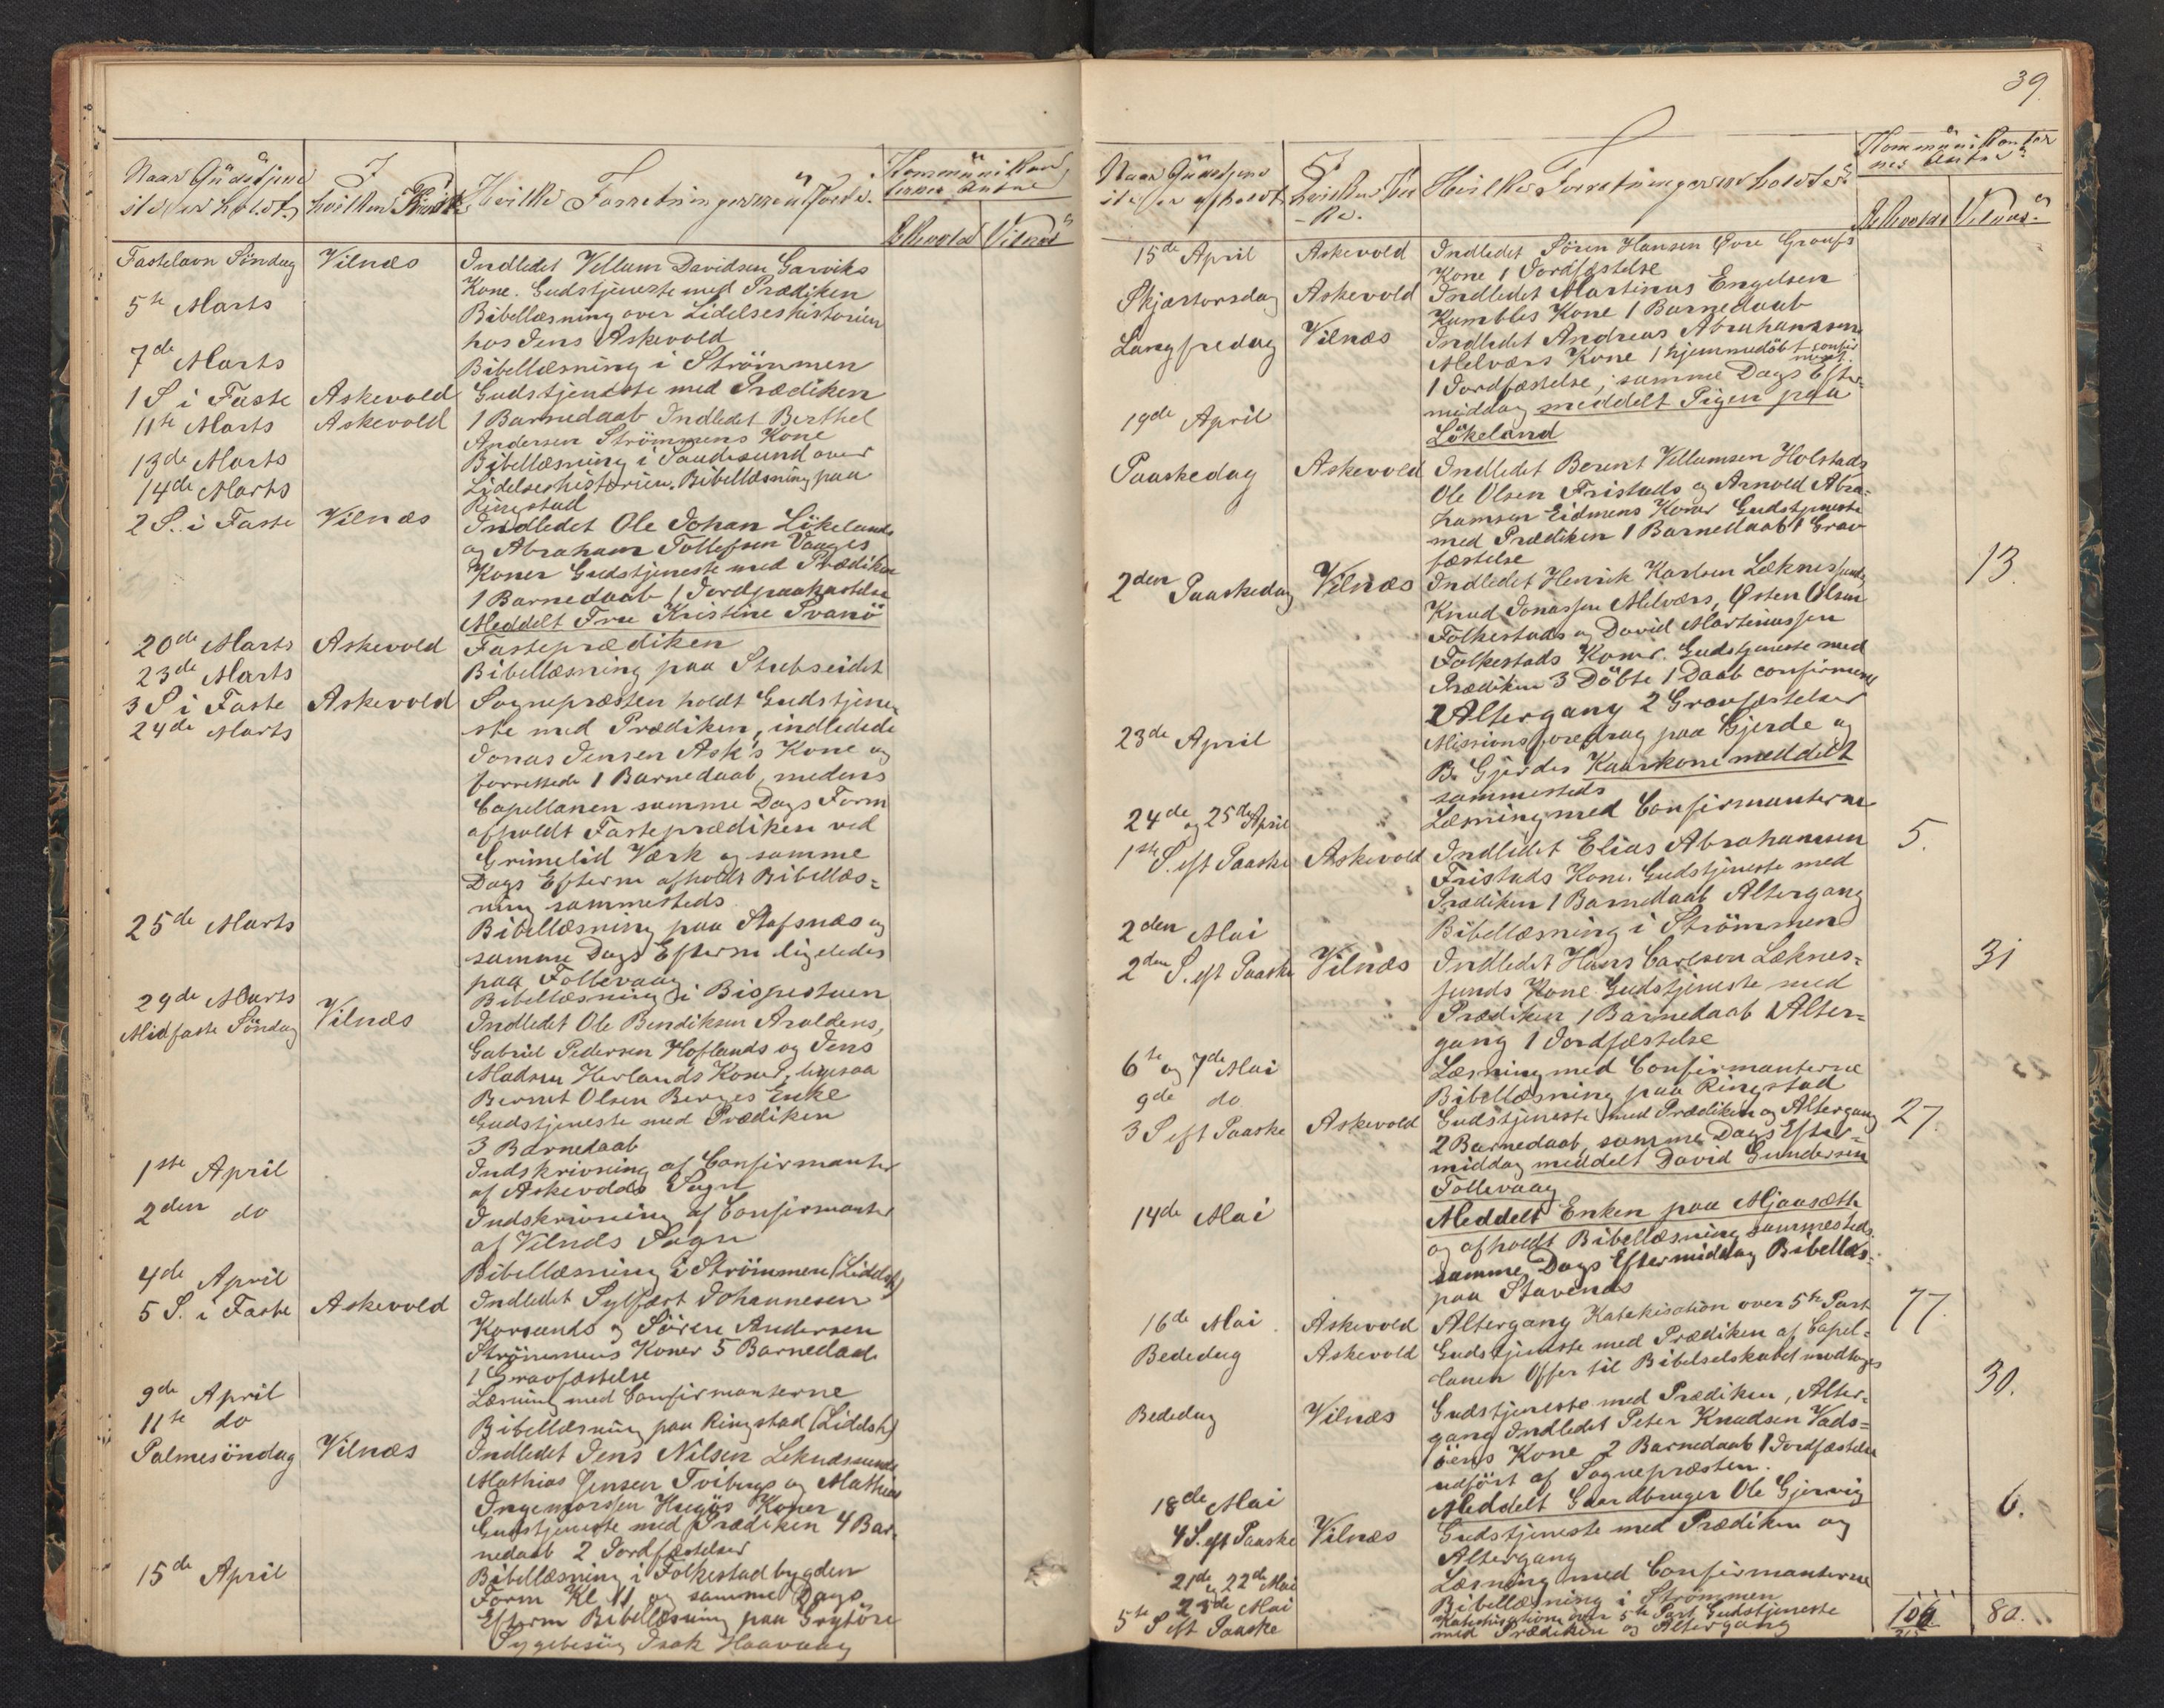 39.
Naar Gudstjene
ste er holdt
I
hvilken Kirke
Hvilke Forretninger ere udførte.
Kommunikan
ternes Antal
Askevold Vilnæs
Fastelavn Söndag Vilnæs Indledet Vellum Davidsen Garviks
Kone. Gudstjeneste med Prædiken
5te Marts Bibellæsning over Lidelseshistorien
hos Jens Askevold
7de Marts Bibellæsning i Strömmen
1 S i Faste Askevold Gudstjeneste med Prædiken
11te Marts Askevold 1 Barnedaab Indledet Berthel
Andersen Strömmens Kone
13de Marts Bibellæsning i Sandesund over
14de Marts Lidelseshistorien. Bibellæsning paa
Ringstad
2 S. i Faste Vilnæs Indledet Ole Johan Lökelands
og Abraham Tollefsen Vaages
Koner Gudstjeneste med Prædiken
1 Barnedaab 1 Jordpaakastelse
Meddelt Frue Kristine Svanö
20de Marts Askevold Fasteprædiken
23de Marts Bibellæsning paa Stubseidet
3 S i Faste Askevold Sognepræsten holdt Gudstjene
24de Marts ste med Prædiken, indledede
Jonas Jensen Ask's Kone og
forrettede 1 Barnedaab, medens
Capellanen samme Dags Form
afholdt Fasteprædiken ved
Grimelid Værk og samme
Dags Efterm afholdt Bibellæs=
ning sammesteds
25de Marts Bibellæsning paa Stafsnæs og
samme Dags Efterm ligeledes
paa Follevaag
29de Marts Bibellæsning i Bispestuen
Midfaste Söndag Vilnæs Indledet Ole Bendiksen Araldens,
Gabriel Pedersen Hoflands og Jens
Madsen Herlands Koner, ligesaa
Bernt Olsen Berges Enke
Gudstjeneste med Prædiken
3 Barnedaab
1ste April Indskrivning af Confirmanter
af Askevolds Sogn
2den do Indskrivning af Confirmanter
af Vilnæs Sogn
4de April Bibellæsning i Strömmen (Lidelsh)
5 S. i Faste Askevold Indledet Sylfæst Johannesen
Korssunds og Sören Andersen
Strömmens Koner 5 Barnedaab
1 Gravfæstelse
9de April Læsning med Confirmanterne
11te do Bibellæsning paa Ringstad (Lidelsh)
Palmesöndag Vilnæs Indledet Jens Nilsen Leknessunds
Mathias Jensen Tviberg og Mathias
Ingemorssen Koner
Gudstjeneste med Prædiken 4 Bar
nedaab 2 Jordfæstelser
15de April Bibellæsning i Folkestadbygden
Form Kl 11 og samme Dags
Efterm Bibellæsning paa Grytöre
Sygebesög Isak Haavaag
Naar Gudstjene
ste er afholdt
I
hvilken Kir
-ke.
Hvilke Forretninger ere holdte
Kommunikanter
nes Antal
Askevold Vilnæs
15de April Askevold Indledet Sören Hansen Övre Grovs
Kone 1 Jordfæstelse
Skjærtorsdag Askevold Indledet Martinus Engelsen
Kumbles Kone 1 Barnedaab
Langfredag Vilnæs Indledet Andreas Abrahamsen
Melværs Kone 1 hjemmedöbt confir
meret.
1 Jordfæstelse; samme Dags Efter=
19de April middag meddelt Pigen paa
Lökeland
Paaskedag Askevold Indledet Berent Vellumsen Holstads
Ole Olsen Fristads og Arnold Abra=
hamsen Eidmens Koner Gudstjeneste
med Prædiken 1 Barnedaab 1 Grav
fæstelse
2den Paaskedag Vilnæs Indledet Henrik Karlsen Læknessunds 13.
Knud Jonassen Melværs, Östen Olsen
Folkestads og David Martinussen
Folkestads Koner. Gudstjeneste med
Prædiken 3 Döbte 1 Daab confirmeret
Altergang 2 Gravfæstelser
23de April Missionsforedrag paa Gjerde og
B. Gjerdes Kaarkone meddelt
sammesteds
24de og 25de April Læsning med Confirmanterne
1ste S. eft Paaske Askevold Indledet Elias Abrahamsen 5.
Fristads Kone. Gudstjeneste med
Prædiken 1 Barnedaab Altergang
2den Mai Bibellæsning i Strömmen
2den S. eft Paaske Vilnæs Indledet Hans Carlsen Læknes= 31
sunds Kone Gudstjeneste med
Prædiken 1 Barnedaab Alter=
gang 1 Jordfæstelse
6te og 7de Mai Læsning med Confirmanterne
9de do Bibellæsning paa Ringstad
3 S eft Paaske Askevold Gudstjeneste med Prædiken og Altergang 27.
2 Barnedaab, samme Dags Efter=
middag meddelt David Gundersen
Follevaag
14de Mai Meddelt Enken paa Mjaasæth
og afholdt Bibellæsning sammesteds.
samme Dags Eftermiddag Bibellæs.
paa Stavenæs
16de Mai Askevold Altergang Katekisation over 5te Part 77.
Bededag Askevold Gudstjeneste med Prædiken af Capel=
lanen Offer til Bibelselskabet modtages
Bededag Vilnæs Gudstjeneste med Prædiken, Alter= 30.
gang Indledet Peter Knudsen Vads=
öens Kone 2 Barnedaab 1 Jordfæstelse
udfört af Sognepræsten.
18de Mai Meddelt Gaardbruger Ole Gjervig
4 S. eft Paaske Vilnæs Gudstjeneste med Prædiken og 6.
Altergang
21de og 22de Mai Læsning med Confirmanterne
23de Mai Bibellæsning i Strömmen
5te S eft Paaske Katekisation over 5te Part Gudstjeneste 80.
med Prædiken og Altergang